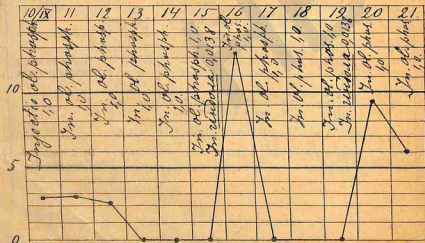 10/IX 11 12 13 14 15 16 17 18 19 20 21.
Injectio ol. phosph. 1,0
In. ol. phosph. 1,0
In. ol. phosph. 1,0
In. ol. phosph. 1,0
In. ol. phosph. 1,0
In. ol. phosph. 1,0
In. 0,0138
In. ol. phos. 1,0
In. ol. phosph. 1,0
In. ol. phos. 1,0
In. ol. phos. 1,0
In. 0,0138
In. ol. phos. 1,0
In. ol. phos. 1,0
10
5
0